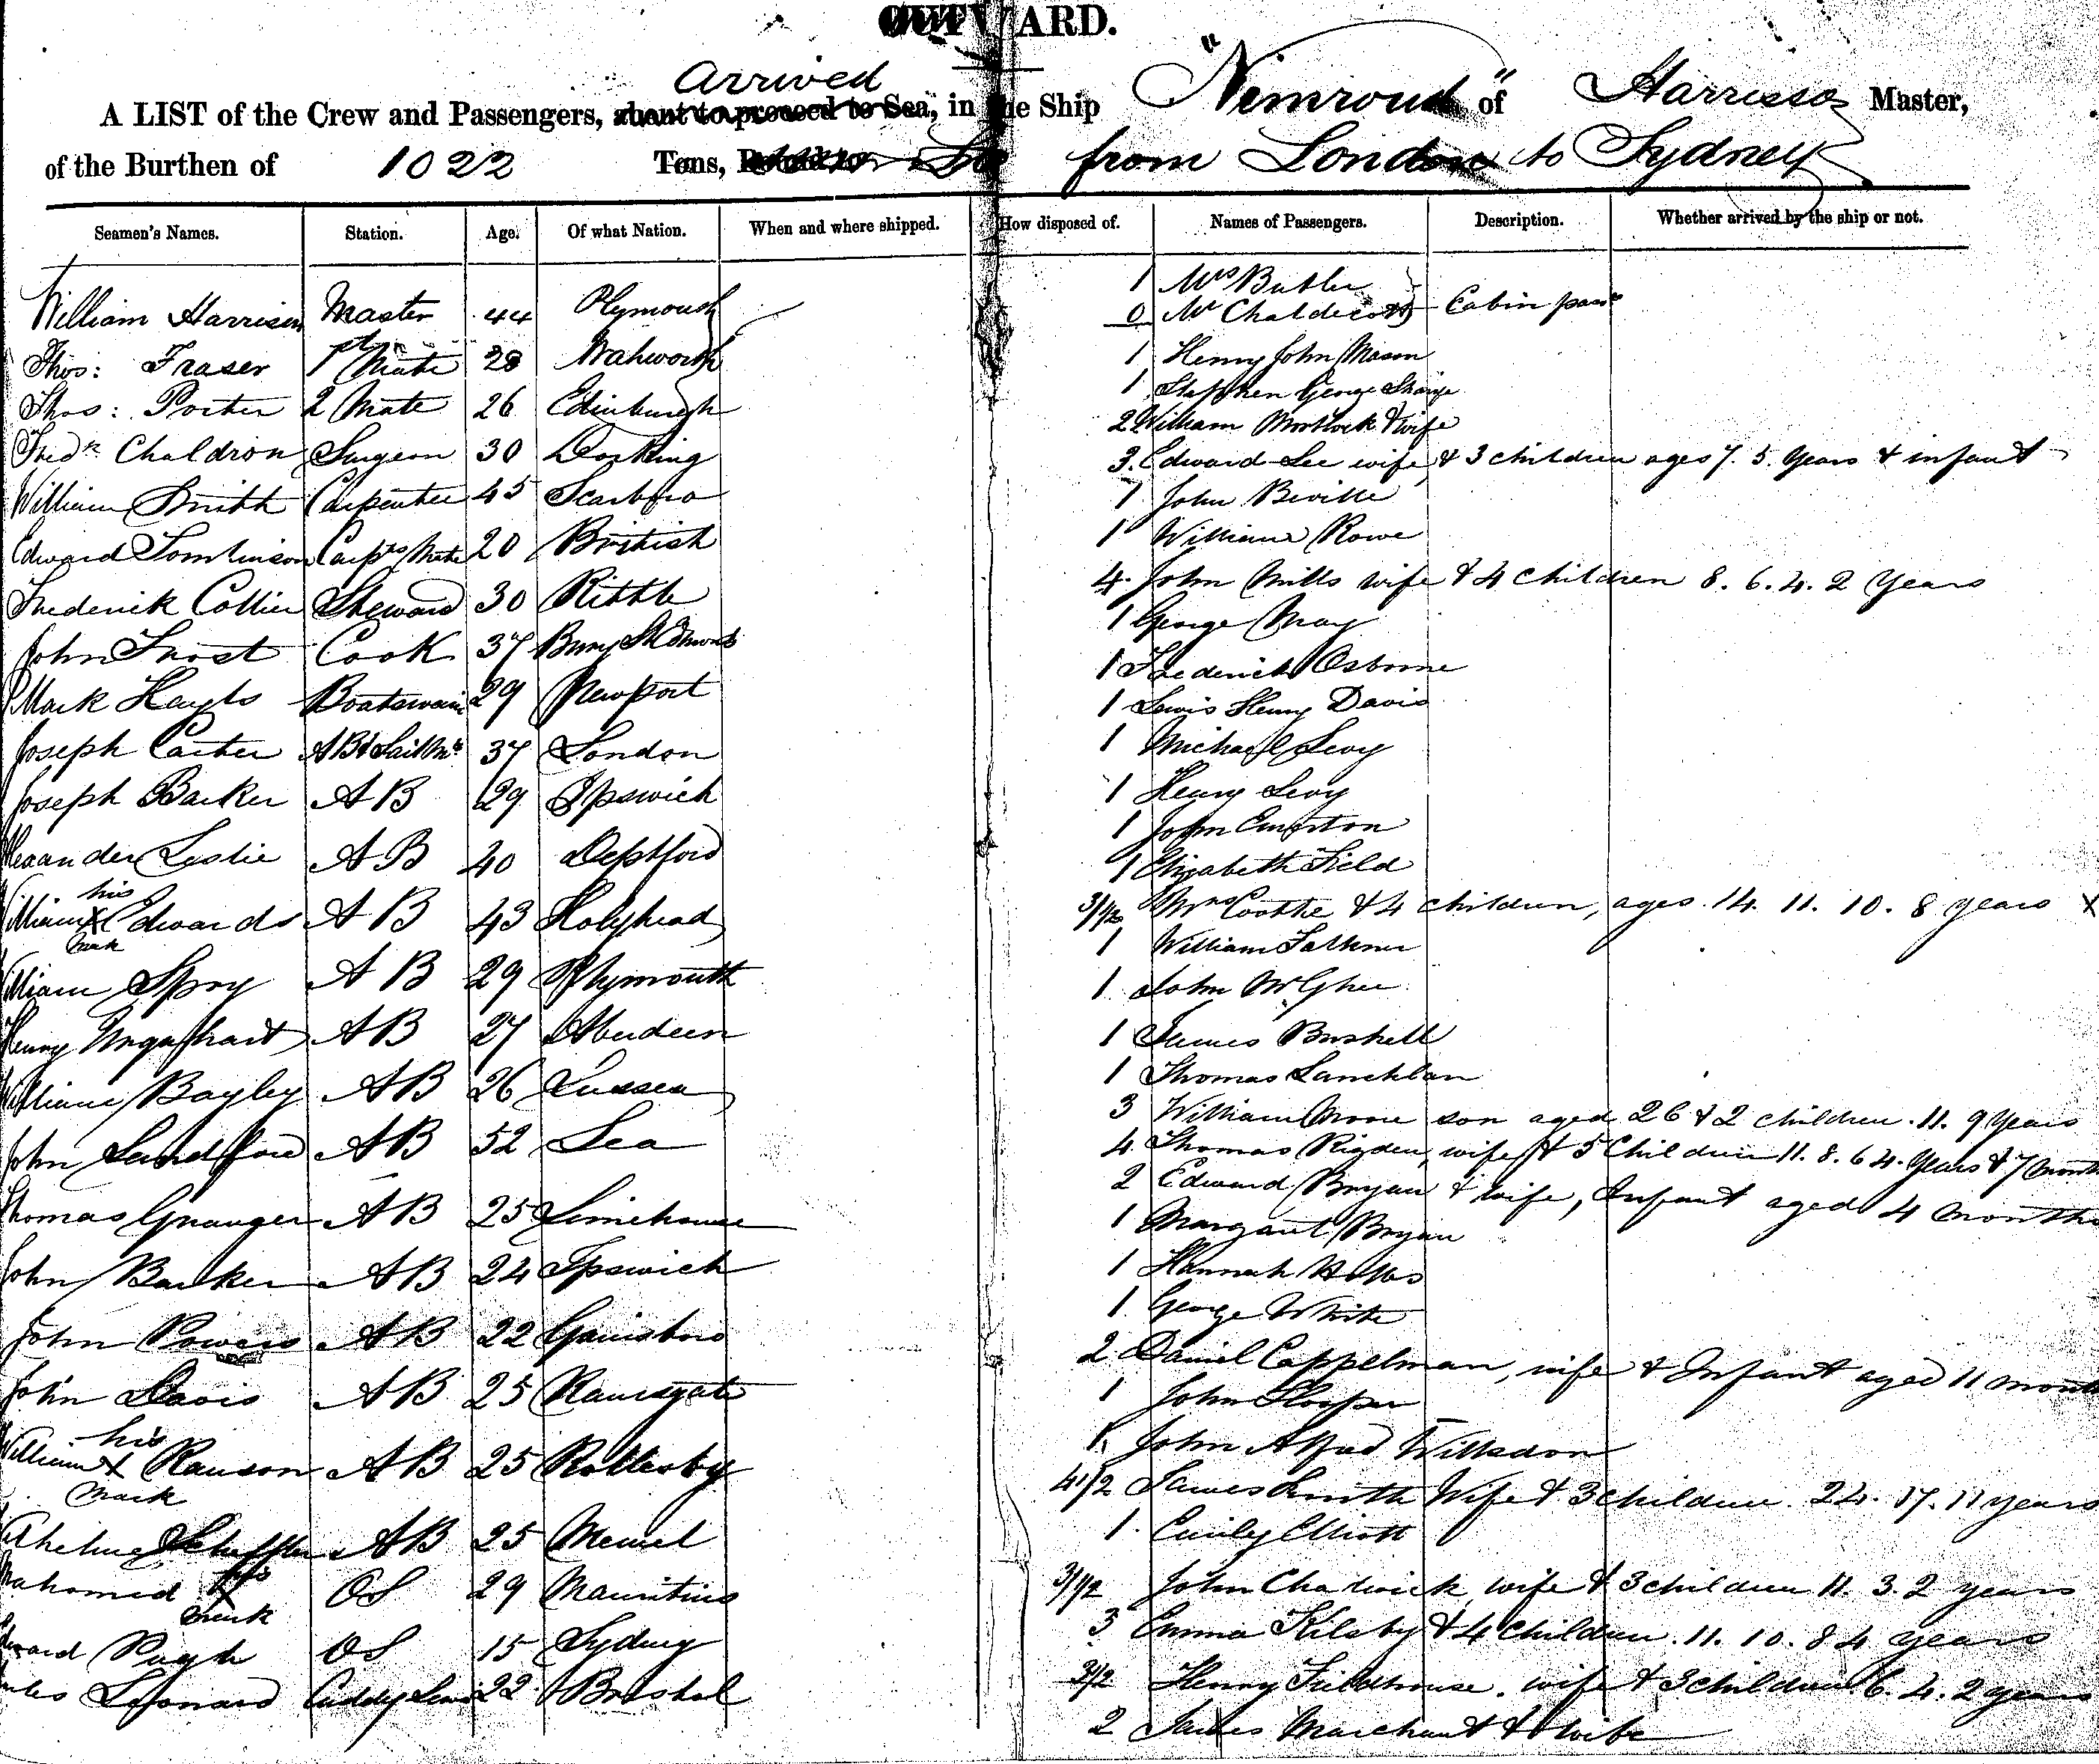 OUTWARD.
Arrived
A LIST of the Crew and Passengers, about to proceed to Sea, in the Ship "Nimroud" of Harrison Master,
of the Burthen of 1022 Tons, from London to Sydney
Seamen's Names. Station. Age. Of what Nation. When and where shipped. How disposed of. Names of Passengers. Description. Whether arrived by the ship or not.
William Harrison Master 44 Plymouth
Thos: Fraser 1st Mate 28 Walworth
Thos: Porter 2 Mate 26 Edinburgh
Fredk Chaldron Surgeon 30 Dorking
William Smith Carpenter 45 Scarboro
Edward Tomlinson Carps Mate 20 British
Frederick Collier Steward 30 
John Frost Cook 37 Bury St Edmunds
Mark Boatswain 29 Newport
Joseph Carter AB & Sail Mr 37 London
Joseph Barker AB 29 Ipswich
Alexander Leslie AB 40 Deptford
his
William X Edwards AB 43 Holyhead
mark
William Spry AB 29 Plymouth
Henry Urquhart AB 27 Aberdeen
William Bayley AB 26 Sussex
John Sandford AB 52 Sea
Thomas Granger AB 25 Limehouse
John Barker AB 24 Ipswich
John Powers AB 22 Gainsboro
John Davis AB 25 Ramsgate
his
William X Ranson AB 25
mark
AB 25 Memel
Mahomed his X OS 29 Mauritius
mark
Pugh OS 15 Sydney
Leonard Cuddy 22 Bristol
1 Mrs Butler
0 Mr Chaldecott Cabin pasrs
1 Henry John Mason
1 Stephen George Sharpe
2 William Mortlock & wife
3. Edward Lee wife, & 3 children ages 7. 5. years & infant
1 John Beville
1 William Rowe
4. John Mills wife & 4 children 8. 6. 4. 2 Years
1 George May
1 Frederick Osborne
1 Lewis Henry Davis
1 Michael Levy
1 Henry Levy
1 John Emerton
1 Elizabeth Field
3/1/2 Mrs & 4 children, ages 14. 11. 10. 8 years X
1 William Falkner
1 John McGhee
1 James Bushell
1 Thomas Lanchlan
3 William Moore son aged 26 & 2 children. 11. 9 Years
4. Thomas Rigden, wife & 5 Children 11. 8. 6 4. Years & 7 month
2 Edward Bryan & wife, Infant aged 4 months
1 Margaret Bryan
1 Hannah
1 George White
2 Daniel Cappelman, wife & Infant aged 11 month
1 John Hooper
1. John Alfred Willsdon
4 1/2 James Smith Wife & 3 children. 24. 17. 11 years
1. Emily Elliott
3/1/2 John Chadwick wife & 3 children 11. 3. 2 years
3 Emma Kilsby & 4 Children. 11. 10. 8 4 years
3 1/2 Henry Fieldhouse. wife & 3 children 6. 4. 2 years
2 James Marchant & wife